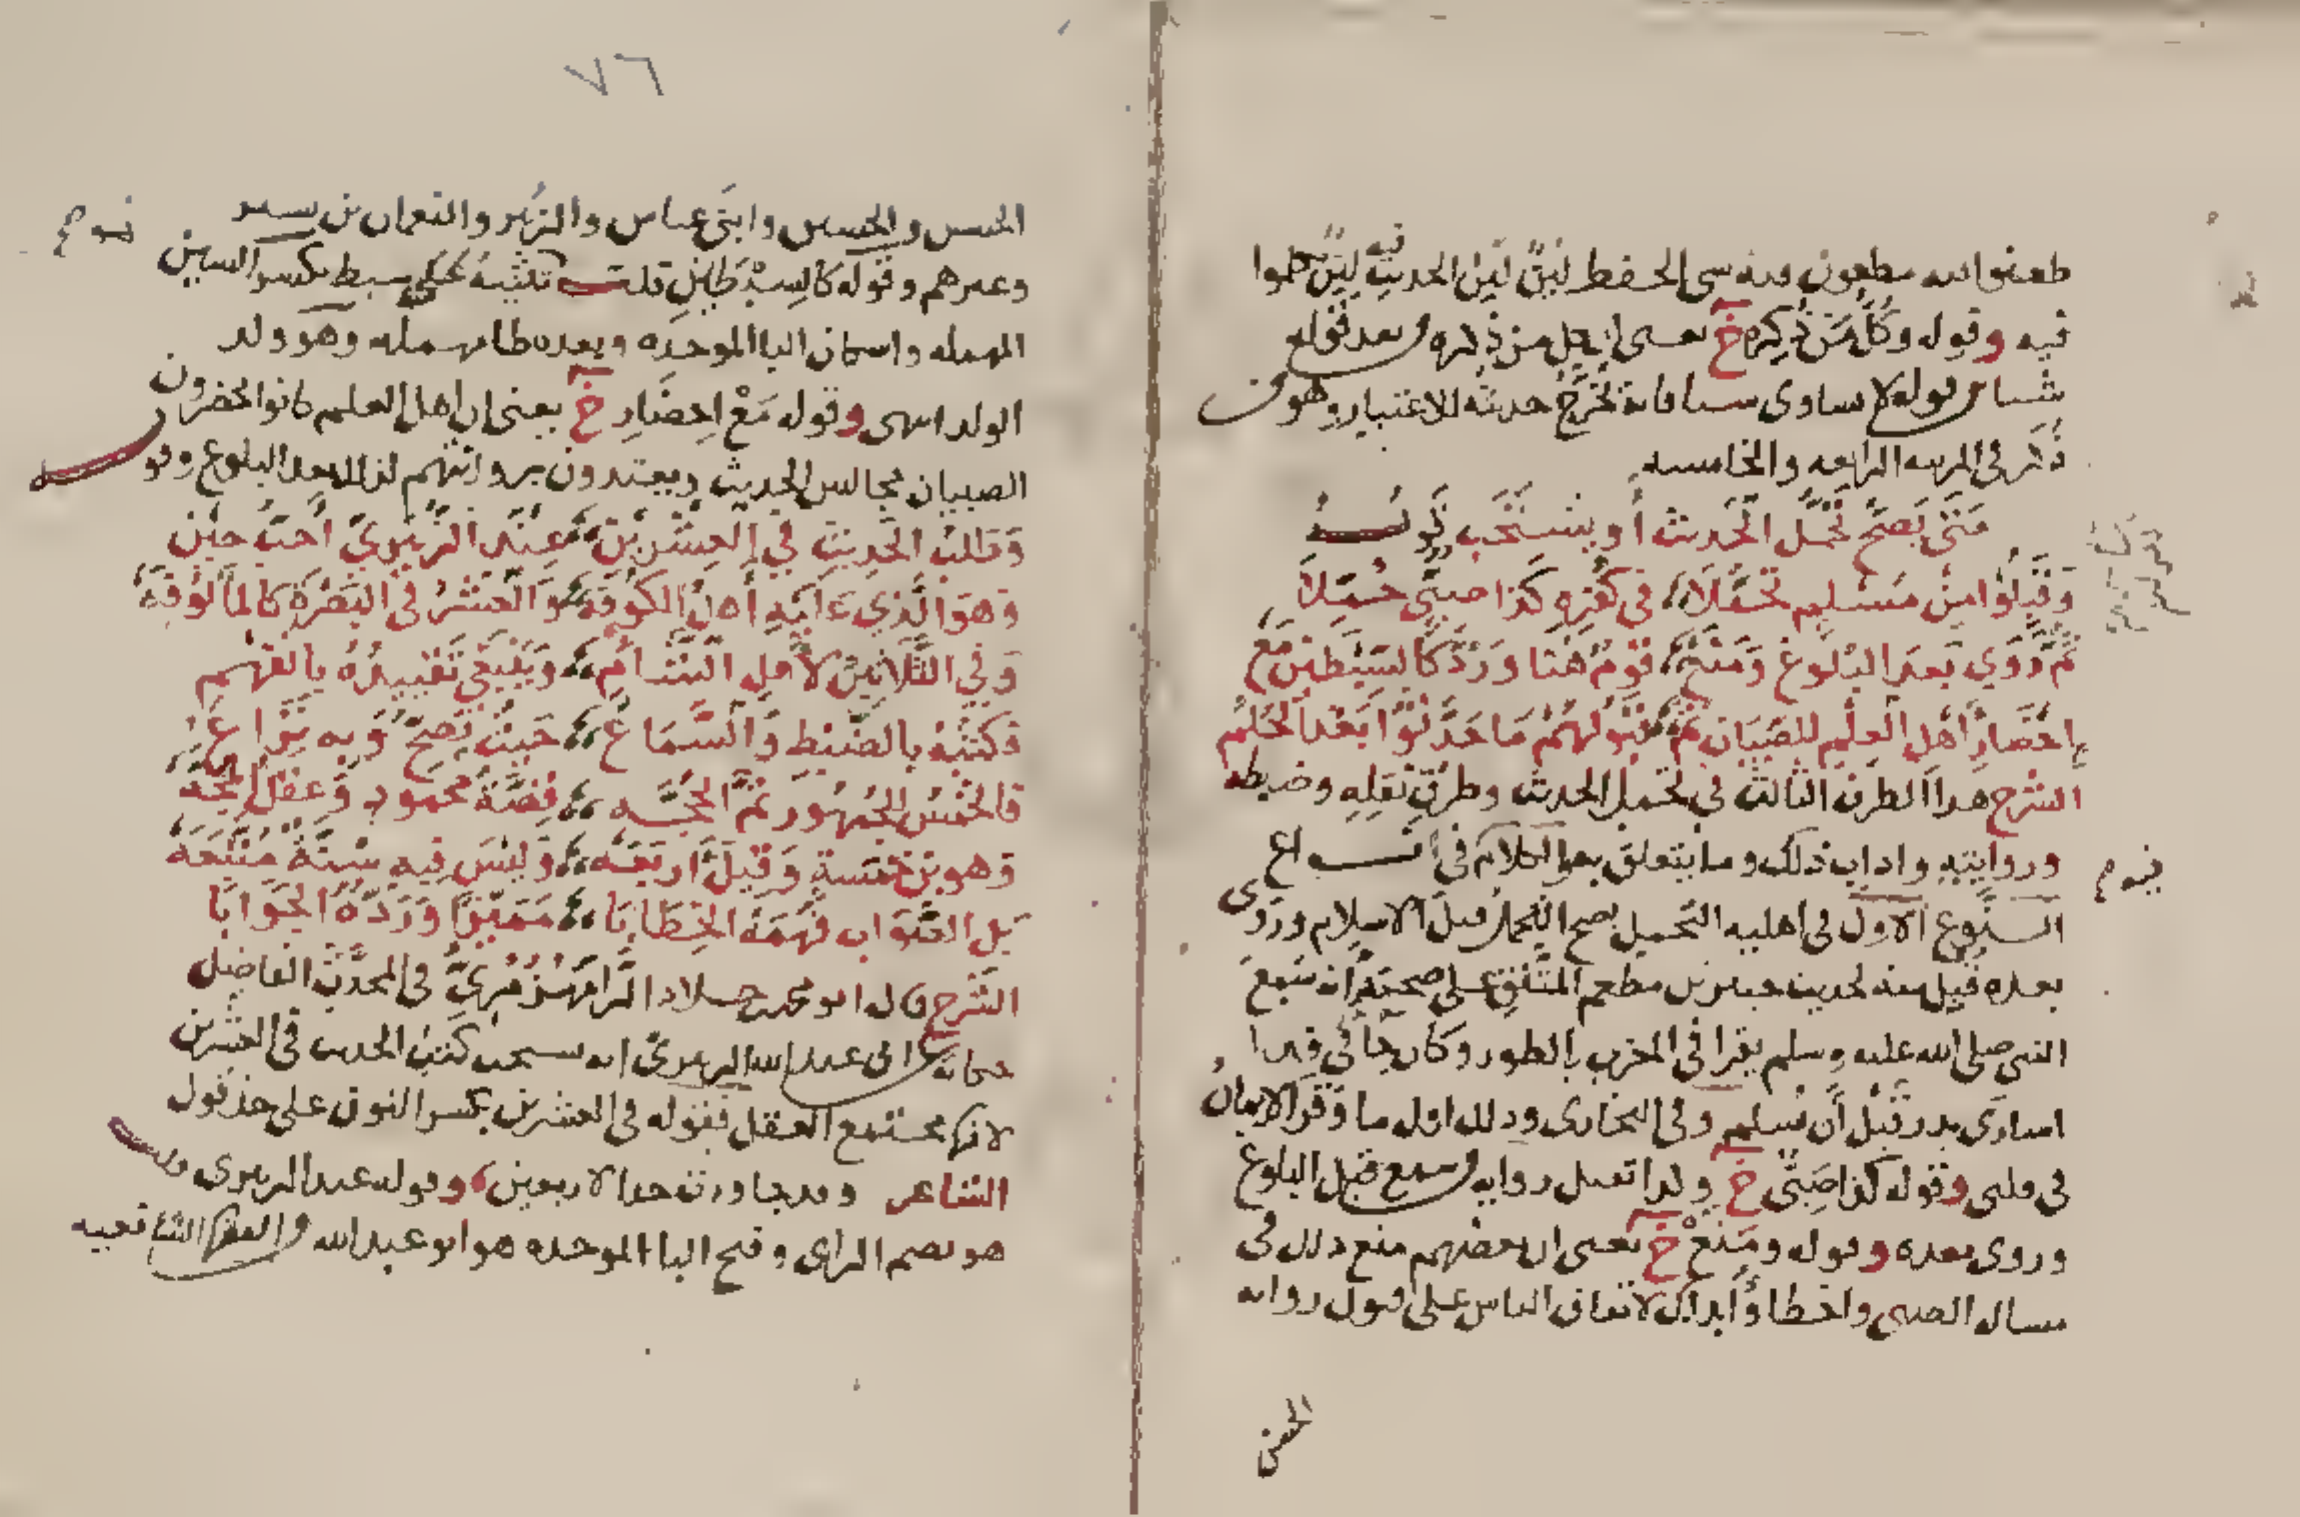 طعنوا فيه مطعون فيه سي الحفظ لين لين الحديث فيه لين تكلموا
فيه وقوله وكل من ذكره خ يعني ان كل من ذكره بعد قوله
شيا من قوله لا يساوي شيا فانه يخرج حديثه للاعتبار وهو من
ذكر في المرتبة الرابعة والخامسة
مَتَى يَصحّ تَحَمُّل الحَديث أو يستَحَب
وَقَبِلُوا مِنْ مُسْلِمٍ تَحَمُّلاَ، في كُفْرِهِ كَذا صَبيّ حُمِّلاَ
ثُمَّ رَوَى بَعدَ البُلوغ وَمَنَعْ، قَوْمٌ هُنَا وَرُدَّ كَالسِّبْطَيْنِ مَعْ
إِحْضَارِ أَهْلِ العِلْمِ لِلصِّبيَانِ ثُمَّ، قَبُولُهُمْ مَا حَدَّثُوا بَعْدَ الحُلُمْ
الشرح هذا الطرف الثالث في تحمل الحديث وطرق نقله وضبطه
وروايته واداب ذلك وما يتعلق به والكلام في انواع
النوع الاول في اهلية التحمل يصح التحمل قبل الاسلام وروى
بعده قبل منه لحديث جبير بن مطعم المتفق على صحته انه سمع
النبي صلى الله عليه وسلم يقرا في المغرب بالطور وكان جا في فدا
اسارى بدر قبل أن يسلم وفي البخاري وذلك اول ما وقر الايمان
في قلبي وقوله كذا صبي خ ولذا تقبل رواية من سمع قبل البلوغ
وروى بعده وقوله ومنع خ يعني ان بعضهم منع ذلك في
مسالة الصبي واخطاوا بذلك لاتفاق الناس على قبول رواية
الحسن
٧٦
الحسن والحسين وابني عباس والزبير والنعمان بن بشير
وغيرهم وقوله كالسبطين قلت تثنية سبط بكسر السين
المهملة واسكان البا الموحدة وبعده طا مهملة وهو ولد
الولد انتهى وقوله مَعْ اِحضَارِ خ يعني ان اهل العلم كانوا يحضرون
الصبيان مجالس الحديث ويعتدون بروايتهم لذلك بعد البلوغ
وَطَلَبُ الحَدِيثِ فِي العِشْرِيْنِ، عِنْدَ الزُّبَيْرِيِّ أَحَبُّ حِيْنِ
وَهوَ الَّذِي عَلَيْهِ أَهْلُ الكُوفَةْ، وَالعَشْرُ فِي البَصْرَةِ كَالمَألُوفَةْ
وَفِي الثَّلاَثِيْنَ لأَهْلِ الشَّأْمِ، وَيَنْبَغِي تَقْيِيدُهُ بِالفَهْمِ
فكَتْبُهُ بِالضَّبْطِ وَالسَّمَاعُ، حَيْثُ يَصِحُّ وَبِهِ نِزَاعُ
فَالخَمْسُ لِلجُمْهُورِ ثُمَّ الحُجَّهْ، قِصَّةُ مَحْمُودٍ وَعَقْلُ المَجَّهْ
وَهوَ بْنُ خَمْسَةٍ وَقِيلَ أَرْبَعَهْ، وَلَيْسَ فِيهِ سُنَّةٌ مُتَّبَعَهْ
بَلِ الصَّوَابُ فَهْمُهُ الخِطَابَا، مُمَيِّزًا وَرَدُّهُ الجَوَابَا
الشرح قال ابو محمد بن خلاد الرَّامَهُرْمُزِيُّ في المحدث الفاضل
حكاية عن ابي عبد الله الزبيري انه يستحب كتب الحديث في العشرين
لانها مجتمع العقل فقوله في العشرين بكسر النون على حد قول
الشاعر وقد جاوزت حد الاربعين، وقوله عند الزبيري
هو بضم الزاي وفتح البا الموحدة هو ابو عبد الله من الفقها الشافعيه